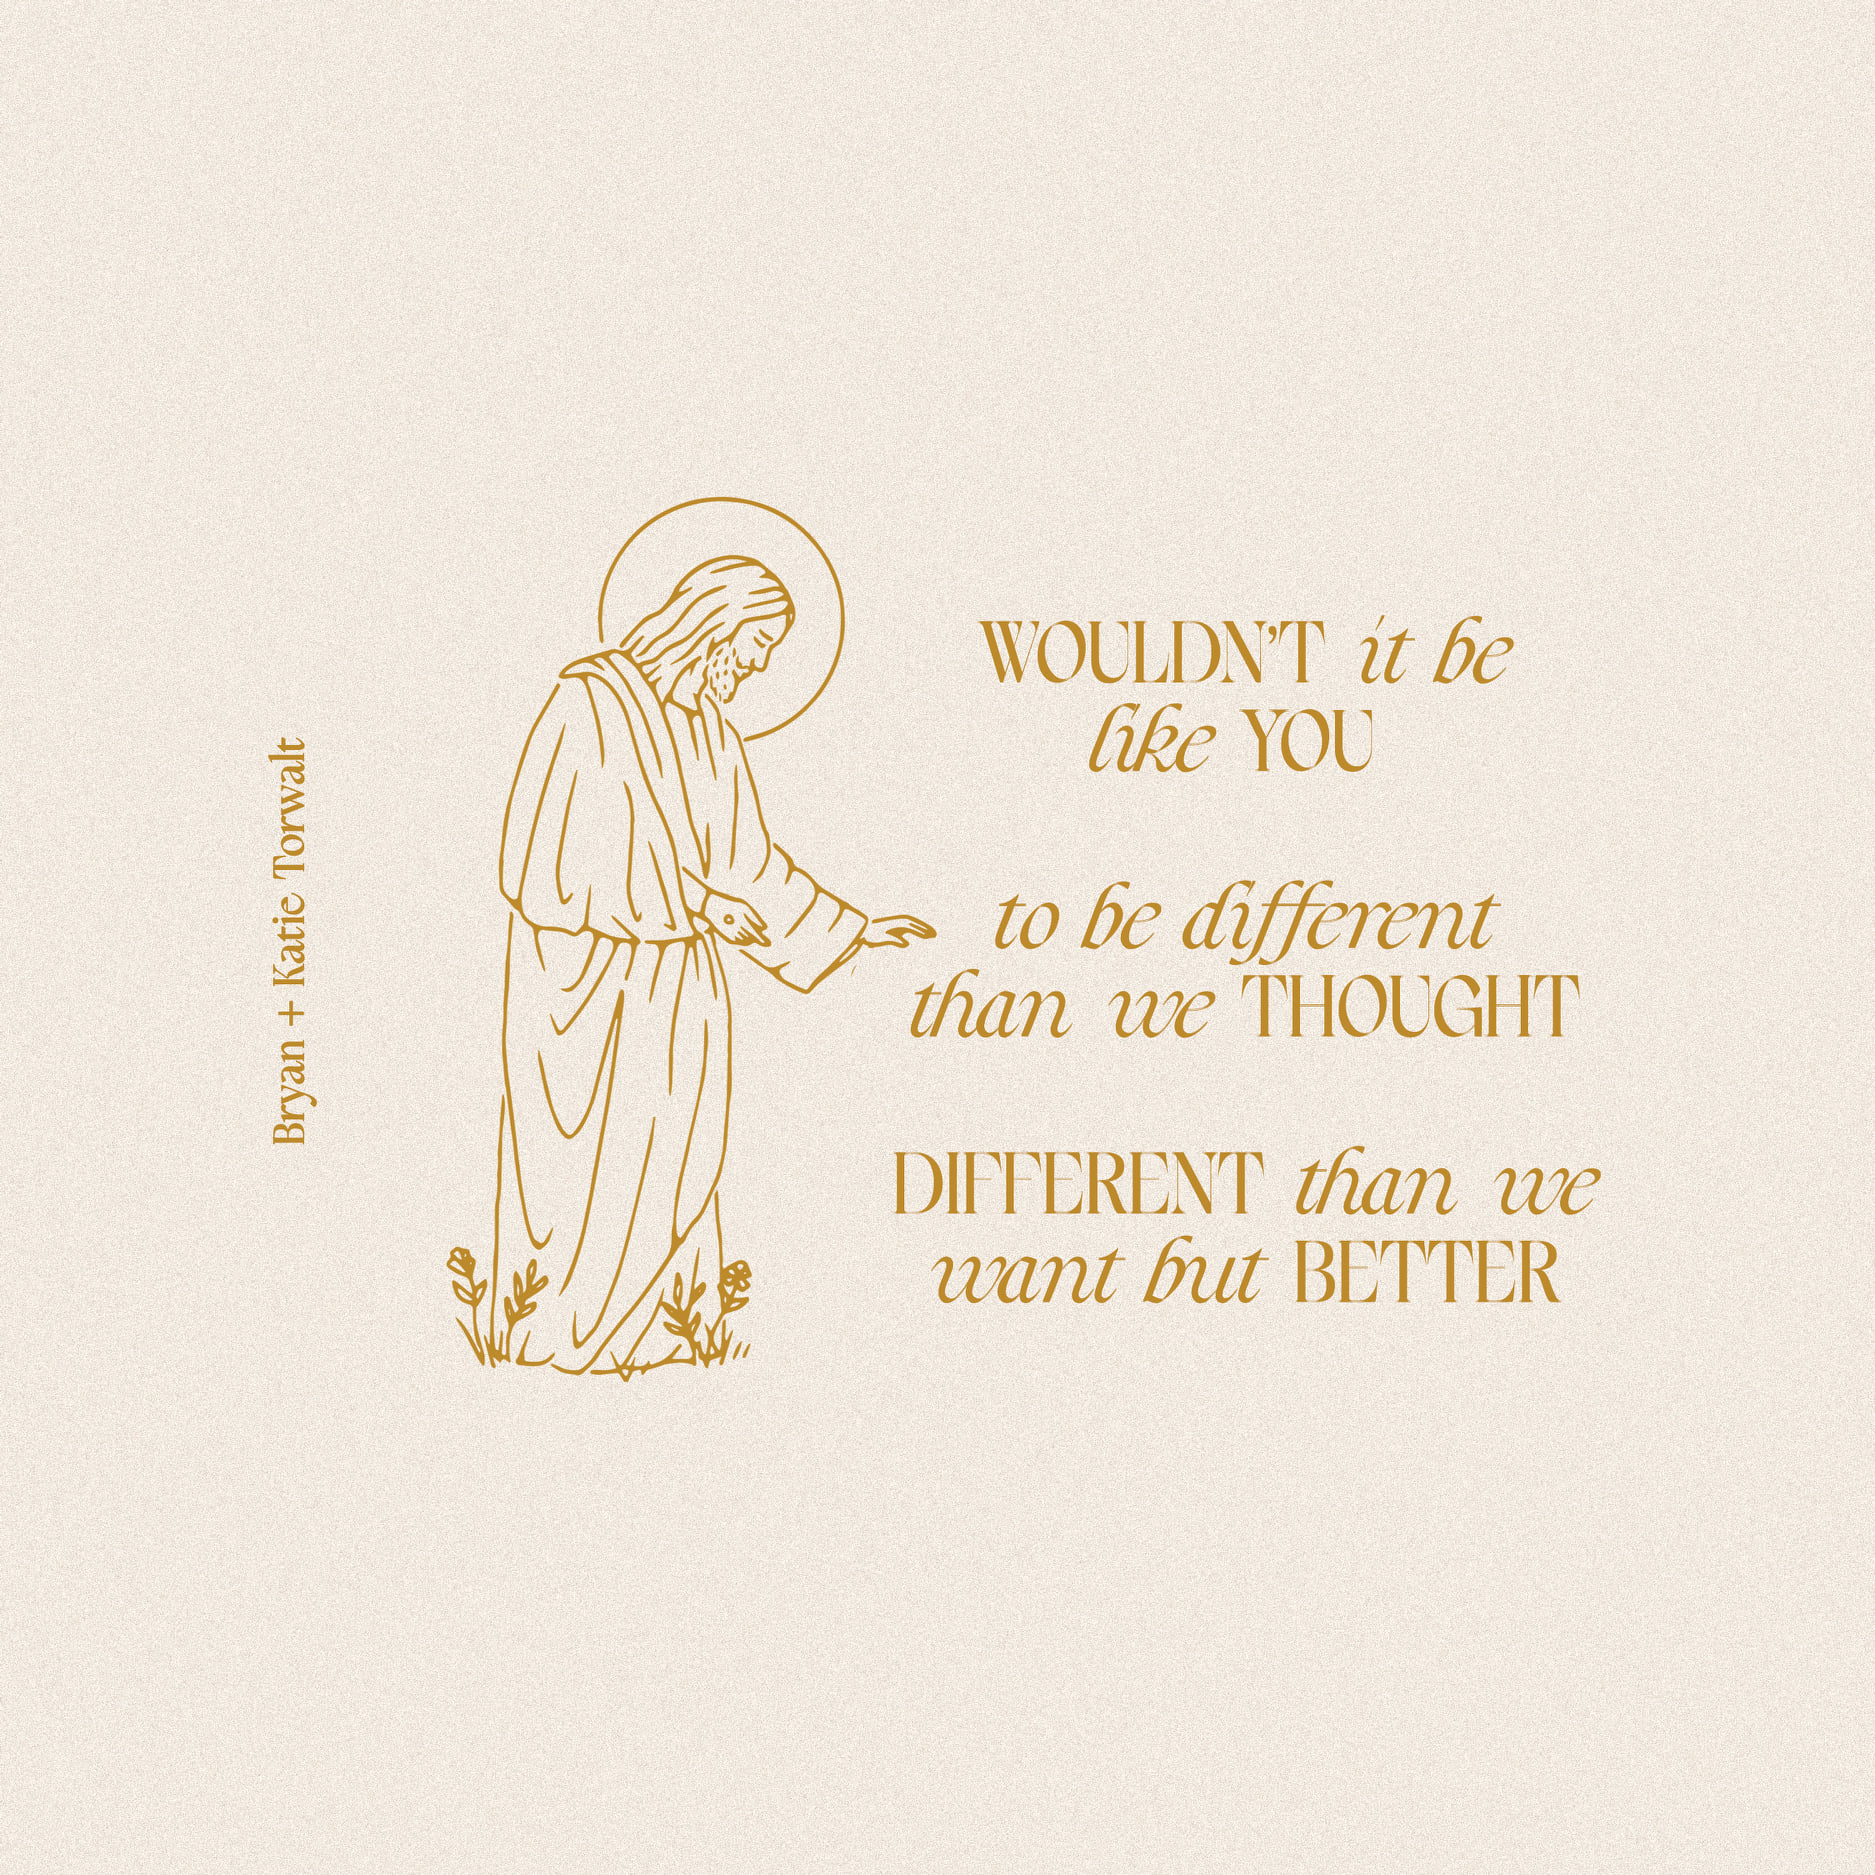 Bryan + Katie Torwalt
WOULDN'T it be
like YOU
to be different
than we THOUGHT
DIFFERENT than we
want but BETTER